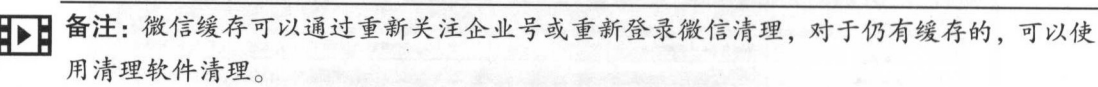 备注：微信缓存可以通过重新关注企业号或重新登录微信清理，对于仍有缓存的，可以使
用清理软件清理。